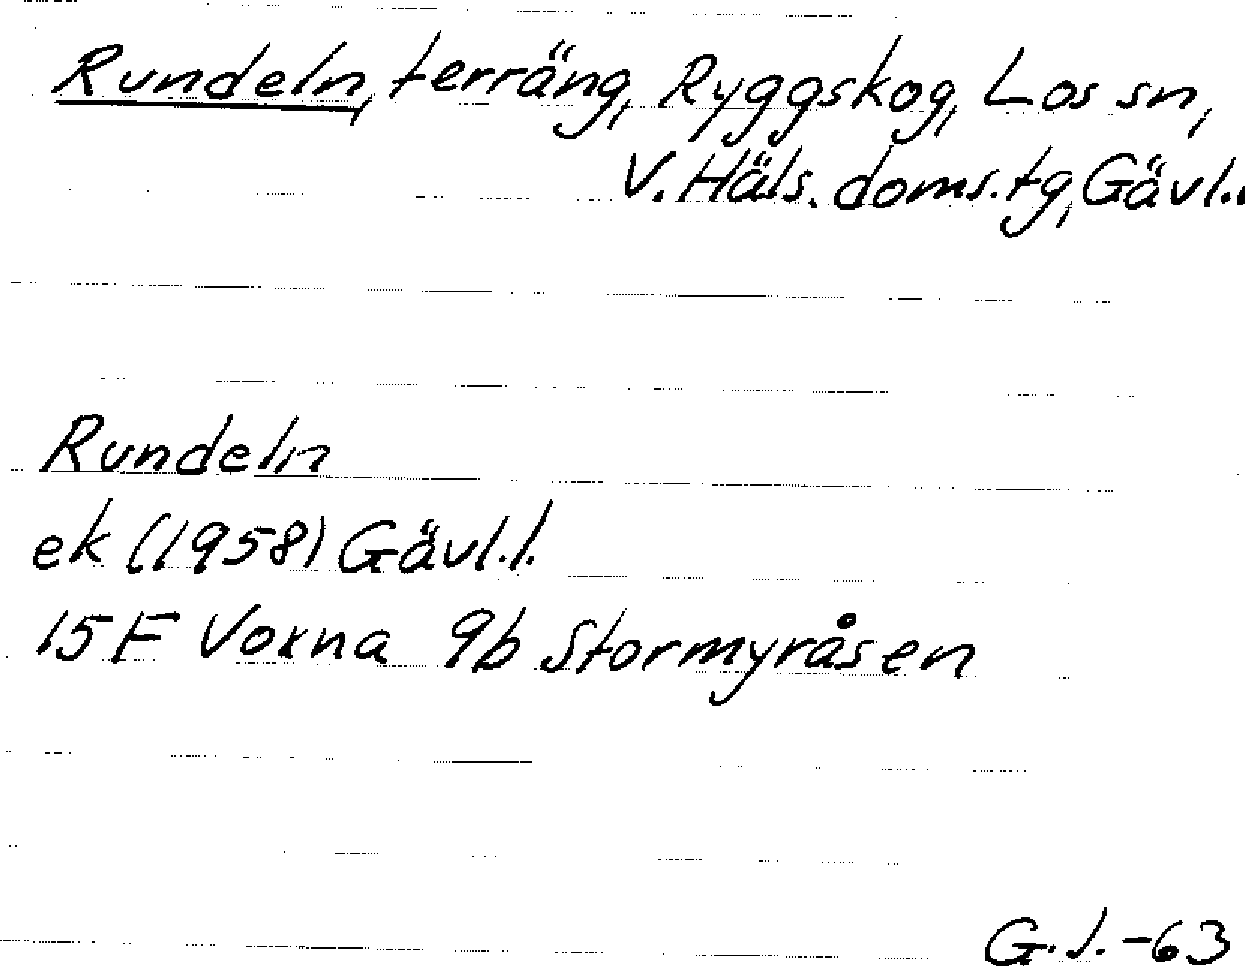 Rundeln, terräng, Ryggskog, Los sn,
V. Häls. doms.tg, Gävl.l.
Rundeln
ek (1958) Gävl.l.
15F Voxna 9b Stormyråsen
G.J.-63